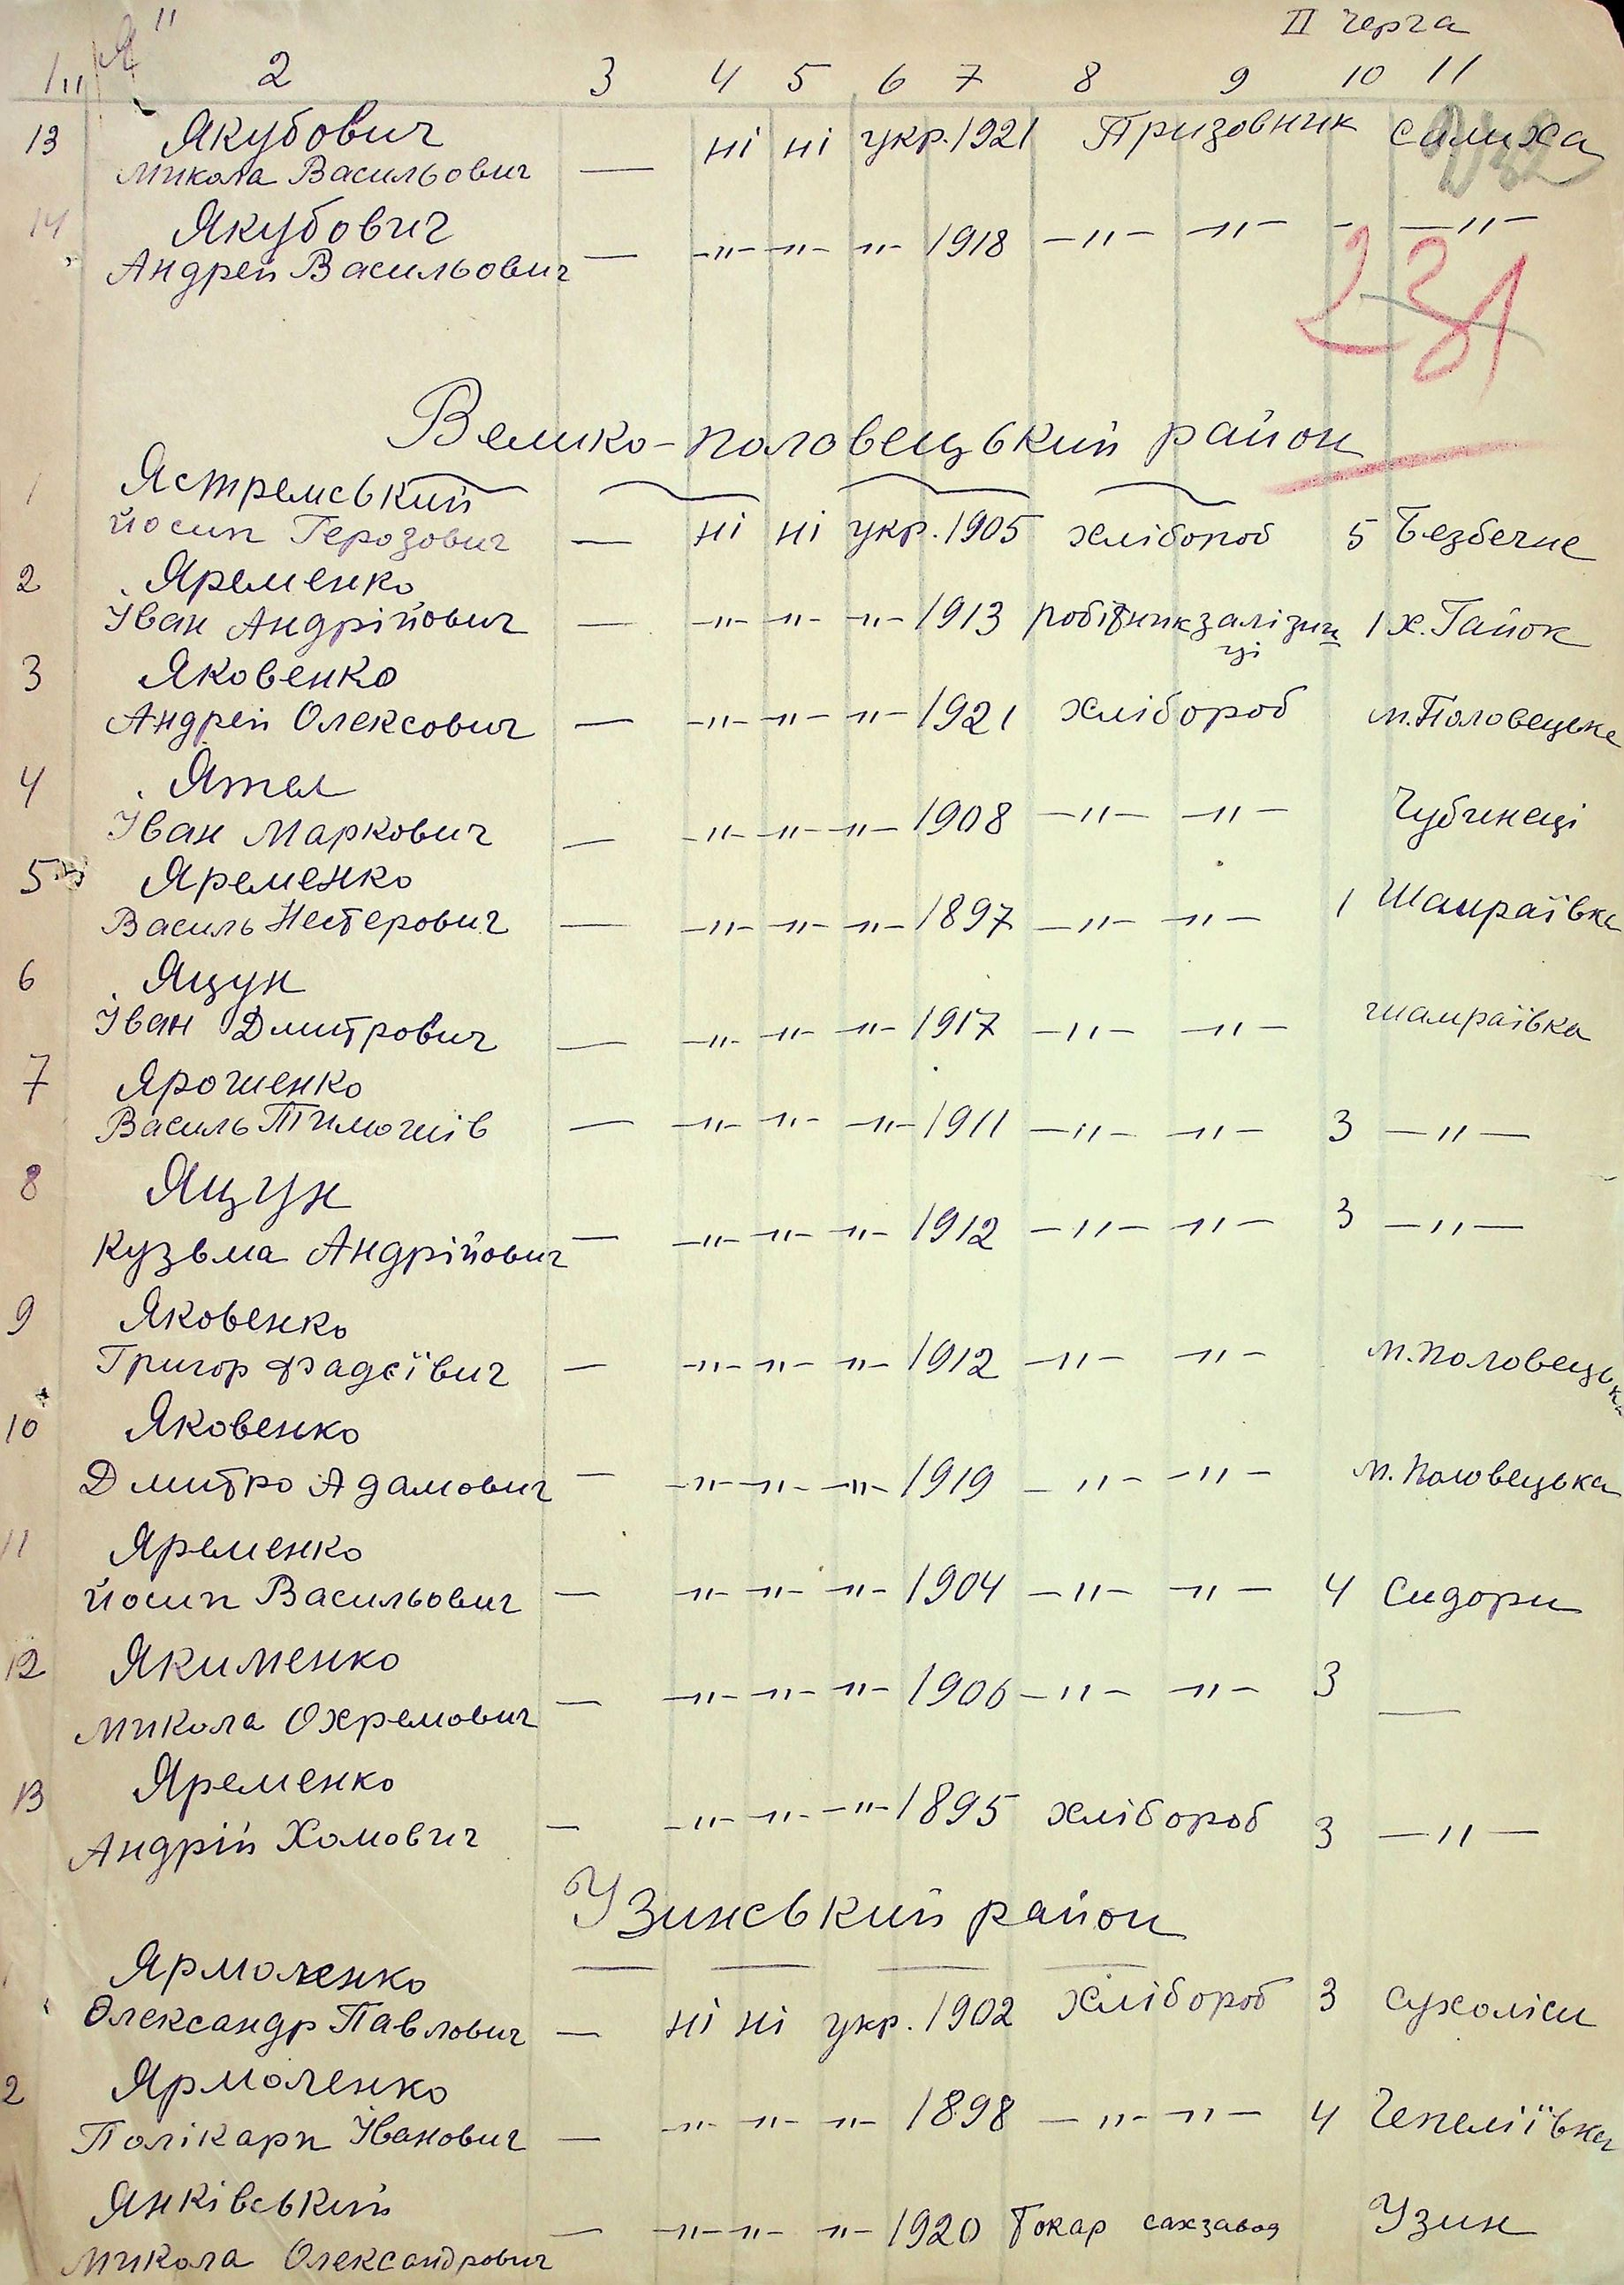 "Я" II черга
1 2 3 4 5 6 7 8 9 10 11
13 Якубович
Микола Васильович — ні ні укр. 1921 Призовник Салиха
232
14 Якубович
Андрей Васильович — -"- -"- -"- 1918 -"- -"- - -"-
231
Велико-половецький район
1 Ястремський
Йосип Герозович — ні ні укр. 1905 хлібороб 5 Безбечне
2 Яременко
Іван Андрійович — -"- -"- -"- 1913 робітник залізни
ці 1 х. Гайок
3 Яковенко
Андрей Олексович — -"- -"- -"- 1921 хлібороб м. Половецьке
4 Ятел
Іван Маркович — -"- -"- -"- 1908 -"- -"- Чубинеці
5 Яременко
Василь Нестерович — -"- -"- -"- 1897 -"- -"- 1 Шамраївка
6 Яцун
Іван Дмитрович — -"- -"- -"- 1917 -"- -"- шамраївка
7 Ярошенко
Василь Тимошів — -"- -"- -"- 1911 -"- -"- 3 -"-
8 Яцун
Кузьма Андрійович — -"- -"- -"- 1912 -"- -"- 3 -"-
9 Яковенко
Григор Фадєївич — -"- -"- -"- 1912 -"- -"- м. половецька
10 Яковенко
Дмитро Адамович — -"- -"- -"- 1919 -"- -"- м. Половецька
11 Яременко
Йосип Васильович — -"- -"- -"- 1904 -"- -"- 4 Сидори
12 Якименко
Микола Охремович — -"- -"- -"- 1906 -"- -"- 3 —
13 Яременко
Андрій Хомович — -"- -"- -"- 1895 хлібороб 3 -"-
Узинський район
Ярмоленко
Олександр Павлович — ні ні укр. 1902 хлібороб 3 сухоліси
2 Ярмоленко
Полікарп Іванович — -"- -"- -"- 1898 -"- -"- 4 Чепеліївка
Янківський
Микола Олександрович — -"- -"- -"- 1920 Токар сахзавод Узин